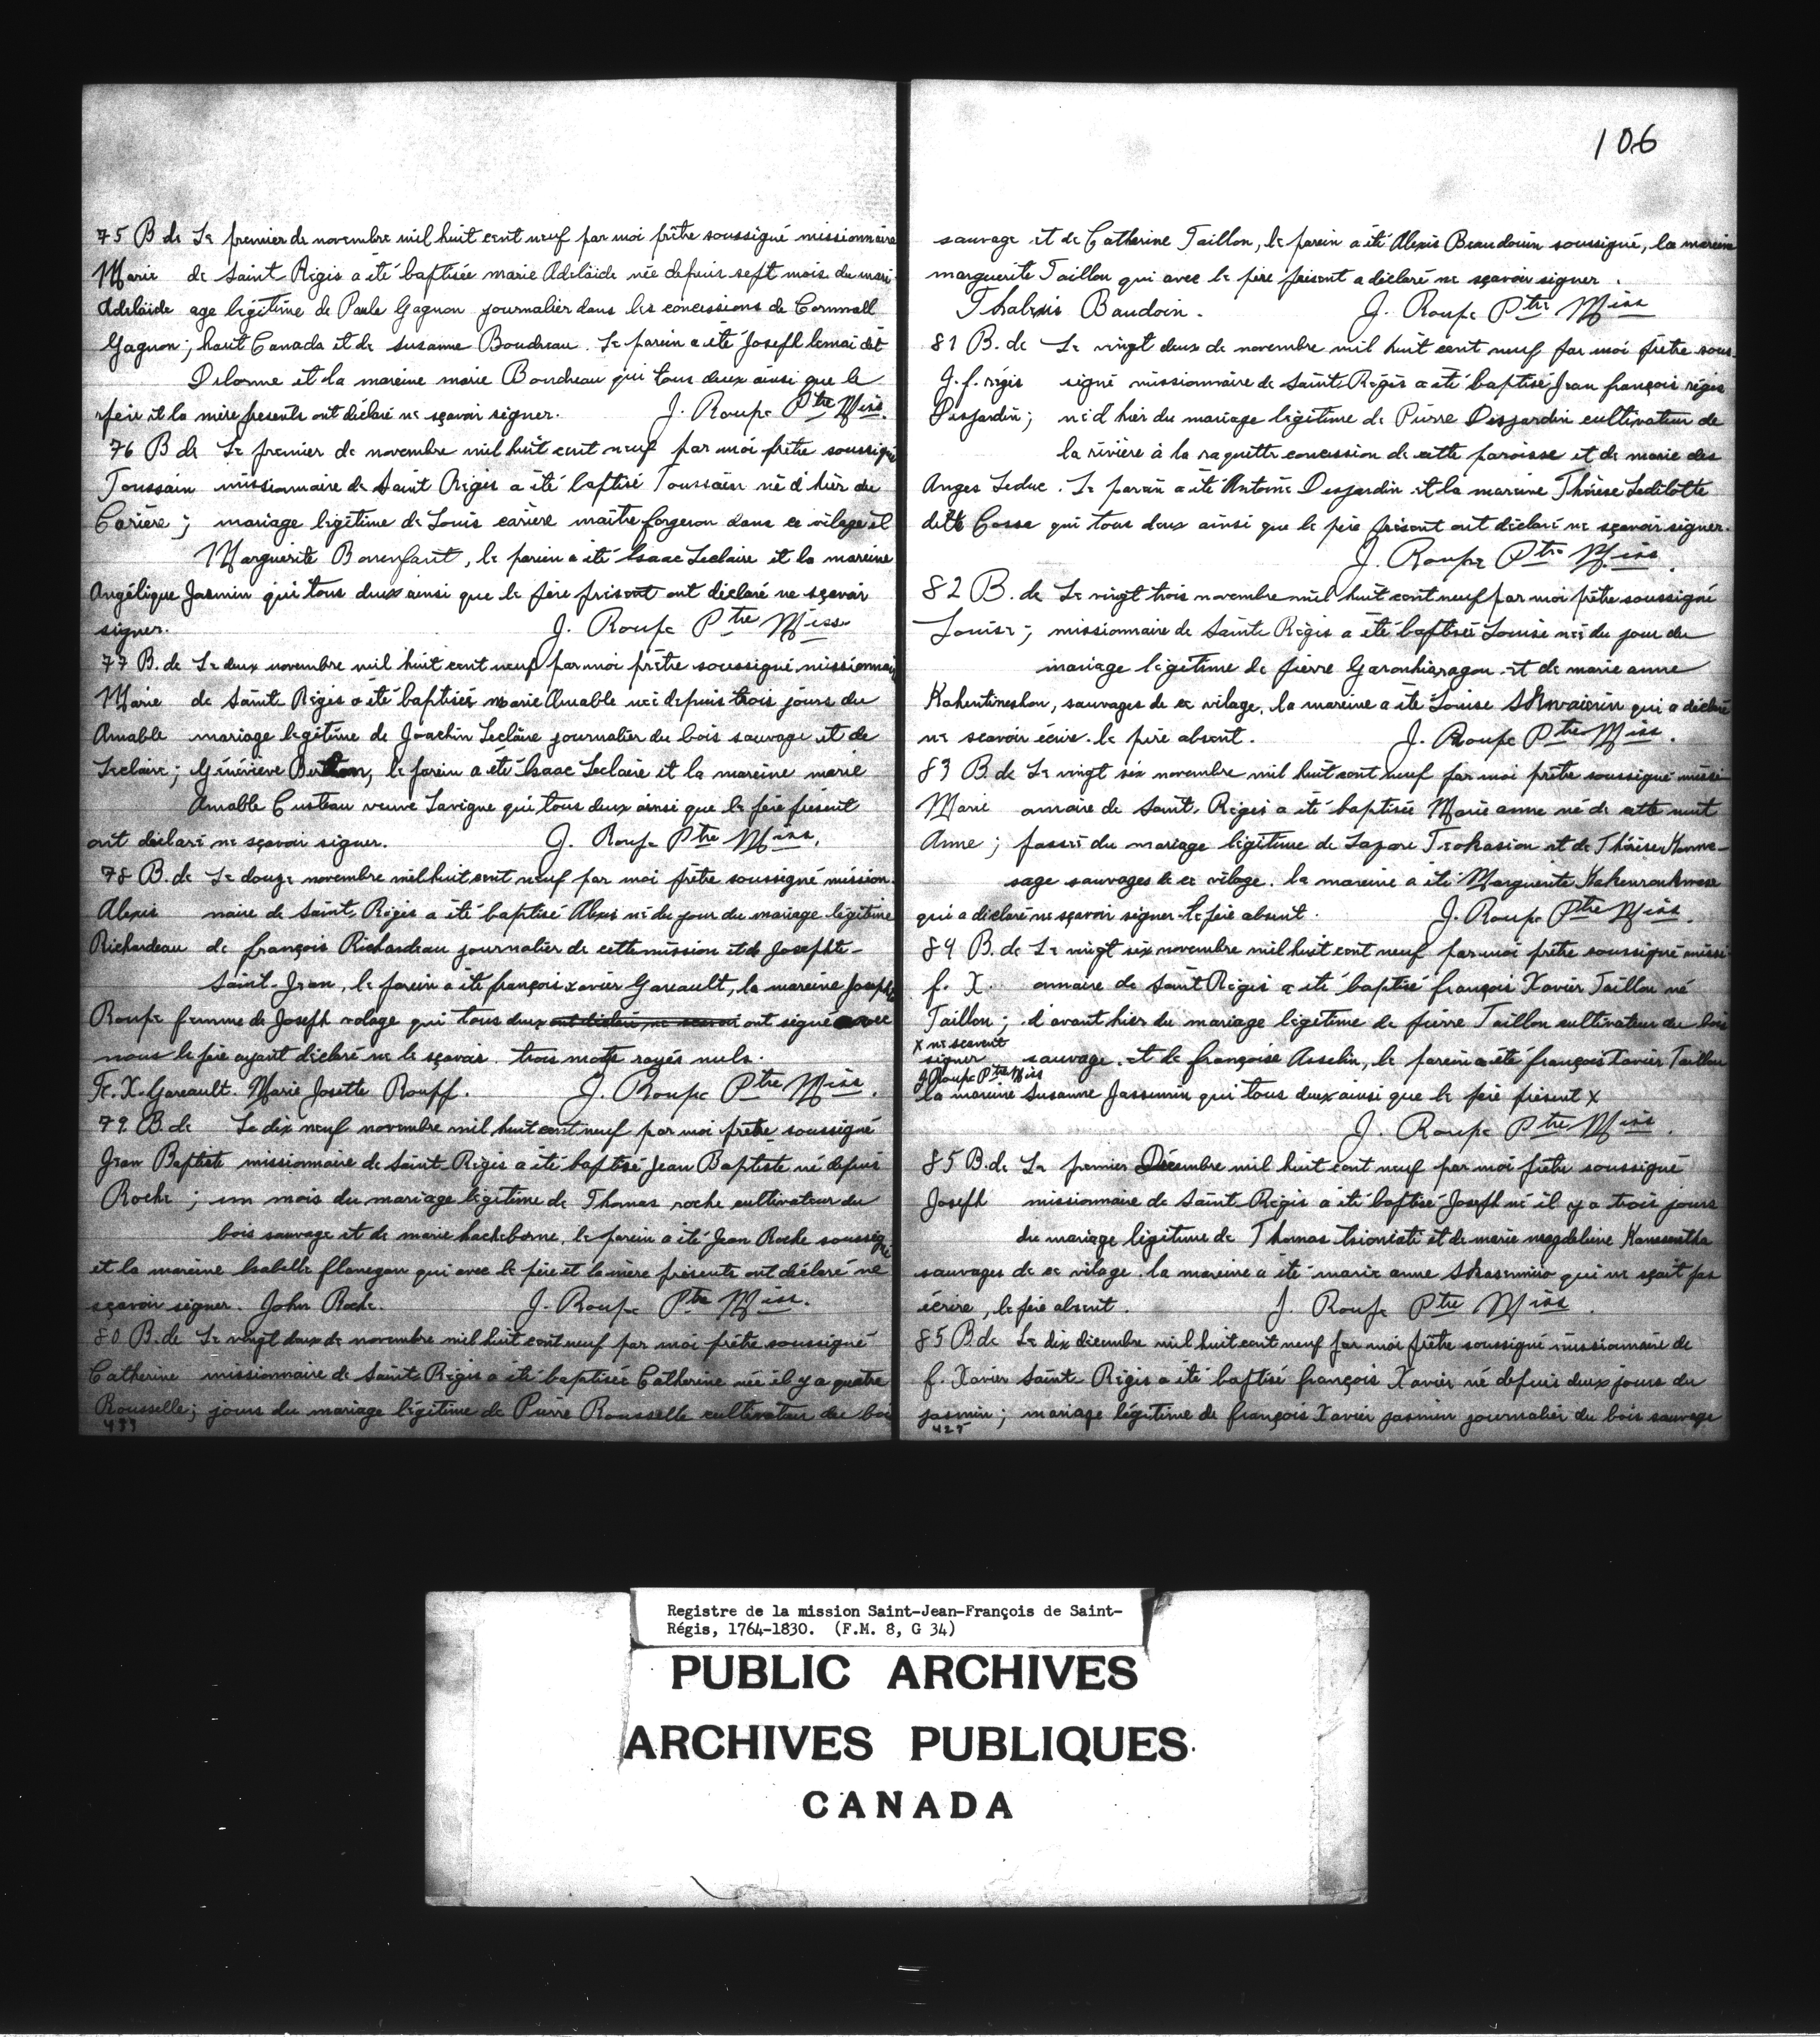 75 B de Le premier de novembre mil huit cent neuf par moi prêtre soussigné missionnaire
Marie de Saint Régis a été baptisée marie Adelaïde née depuis sept mois du mari-
Adelaïde age légitime de Paule Gagnon journalier dans les concessions de Cornwall
Gagnon; haut Canada et de susanne Boudreau. Le parein a été Joseph lemai dit
Delorme et la mareine marie Boudreau qui tous deux ainsi que le
père et la mère presents ont déclaré ne sçavoir signer. J. Roupe Ptre Miss.
76 B de Le premier de novembre mil huit cent neuf par moi prêtre soussigné
Toussain missionnaire de Saint Régis a été baptisé Toussain né d'hier du
Carière; mariage légitime de Louis carière maitre forgeron dans ce vilage et
Marguerite Bonenfant, le parein a été Isaac Leclaire et la mareine
Angélique Jasmin qui tous deux ainsi que le père présent ont déclaré ne sçavoir
signer. J. Roupe Ptre Miss.
77 B. de Le deux novembre mil huit cent neuf par moi prêtre soussigné missionnaire
Marie de Saint Régis a été baptisée marie Amable née depuis trois jours du
Amable mariage légitime de Joachin Leclaire journalier du bois sauvage et de
Leclaire; Généviève le parein a été Isaac Leclaire et la mareine marie
Amable Custeau veuve Lavigne qui tous deux ainsi que le père présent
ont déclaré ne sçavoir signer. J. Roupe Ptre Miss.
78 B. de Le douze novembre mil huit cent neuf par moi prêtre soussigné mission-
Alexis naire de Saint Régis a été baptisé Alexis né du jour du mariage légitime
Richardeau de françois Richardeau journalier de cette mission et de Josephte-
Saint-Jean, le parein a été françois xavier Gareault, la mareine Josephte
Roupe femme de Joseph volage qui tous deux ont déclaré ne scavoir ont signé avec
nous le père ayant déclaré ne le sçavoir. trois mots rayés nuls.
Fr. X. Gareault. Marie Josette Roupf. J. Roupe Ptre Miss.
79. B. de Le dix neuf novembre mil huit cent neuf par moi prêtre soussigné
Jean Baptiste missionnaire de Saint Régis a été baptisé Jean Baptiste né depuis
Roche; un mois du mariage légitime de Thomas roche cultivateur du
bois sauvage et de marie hackeborne, le parein a été Jean Roche soussigné
et la mareine Isabelle flanegan qui avec le père et la mère présents ont déclaré ne
sçavoir signer. John Roche. J. Roupe Ptre Miss.
80 B. de Le vingt deux de novembre mil huit cent neuf par moi prêtre soussigné
Catherine missionnaire de Saint Régis a été baptisée Catherine née il y a quatre
Rousselle; jours du mariage légitime de Pierre Rousselle cultivateur du bois
106
sauvage et de Catherine Taillon, le parein a été Alexis Beaudouin soussigné, la mareine
marguerite Taillon qui avec le père présent a déclaré ne sçavoir signer.
Baudoin. J. Roupe Ptre Miss
81 B. de Le vingt deux de novembre mil huit cent neuf par moi prêtre sous-
J. f. régis signé missionnaire de Saint Régis a été baptisé Jean françois régis
Desjardin; né d'hier du mariage légitime de Pierre Desjardin cultivateur de
la rivière à la raquette concession de cette paroisse et de marie des
Anges Leduc. Le parein a été Antoine Desjardin et la mareine Thérèse Ledilotte
ditte Casse qui tous deux ainsi que le père présent ont déclaré ne sçavoir signer.
J. Roupe Ptre Miss.
82 B. de Le vingt trois novembre mil huit cent neuf par moi prêtre soussigné
Louise; missionnaire de Saint Régis a été baptisée Louise née du jour du
mariage légitime de pierre Garonhiaragon et de marie anne
Kahentineshon, sauvages de ce vilage, la mareine a été Louise qui a déclaré
ne scavoir écrire. le père absent. J. Roupe Ptre Miss.
83 B. de Le vingt six novembre mil huit cent neuf par moi prêtre soussigné missi-
Marie onnaire de Saint Régis a été baptisée Marie anne né de cette nuit
Anne; passée du mariage légitime de Lazare Tiohasion et de Thérèse Kanne-
sage sauvages de ce vilage. la mareine a été Marguerite
qui a déclaré ne sçavoir signer. le père absent. J. Roupe Ptre Miss.
84 B. de Le vingt six novembre mil huit cent neuf par moi prêtre soussigné missi-
f. X. onnaire de Saint Régis a été baptisé françois Xavier Taillon né
Taillon; d'avant hier du mariage légitime de pierre Taillon cultivateur du bois
x ne scavent
signer sauvage et de françoise Asselin, le parein a été françois Xavier Taillon
J. Roupe Ptre Miss
la mareine Susanne Jassemin qui tous deux ainsi que le père présent x
J. Roupe Ptre Miss.
85 B. de Le premier Décembre mil huit cent neuf par moi prêtre soussigné
Joseph missionnaire de Saint Régis a été baptisé Joseph né il y a trois jours
du mariage légitime de Thomas tsioniati et de marie magdeleine Kanasentha
sauvages de ce vilage. la mareine a été marie anne qui ne sçait pas
écrire, le père absent. J. Roupe Ptre Miss.
85 B. de Le dix décembre mil huit cent neuf par moi prêtre soussigné missionnaire de
f. Xavier Saint Régis a été baptisé françois Xavier né depuis deux jours du
jasmin; mariage légitime de françois Xavier jasmin journalier du bois sauvage
425
Registre de la mission Saint-Jean-François de Saint-
Régis, 1764-1830. (F.M. 8, G 34)
PUBLIC ARCHIVES
ARCHIVES PUBLIQUES
CANADA